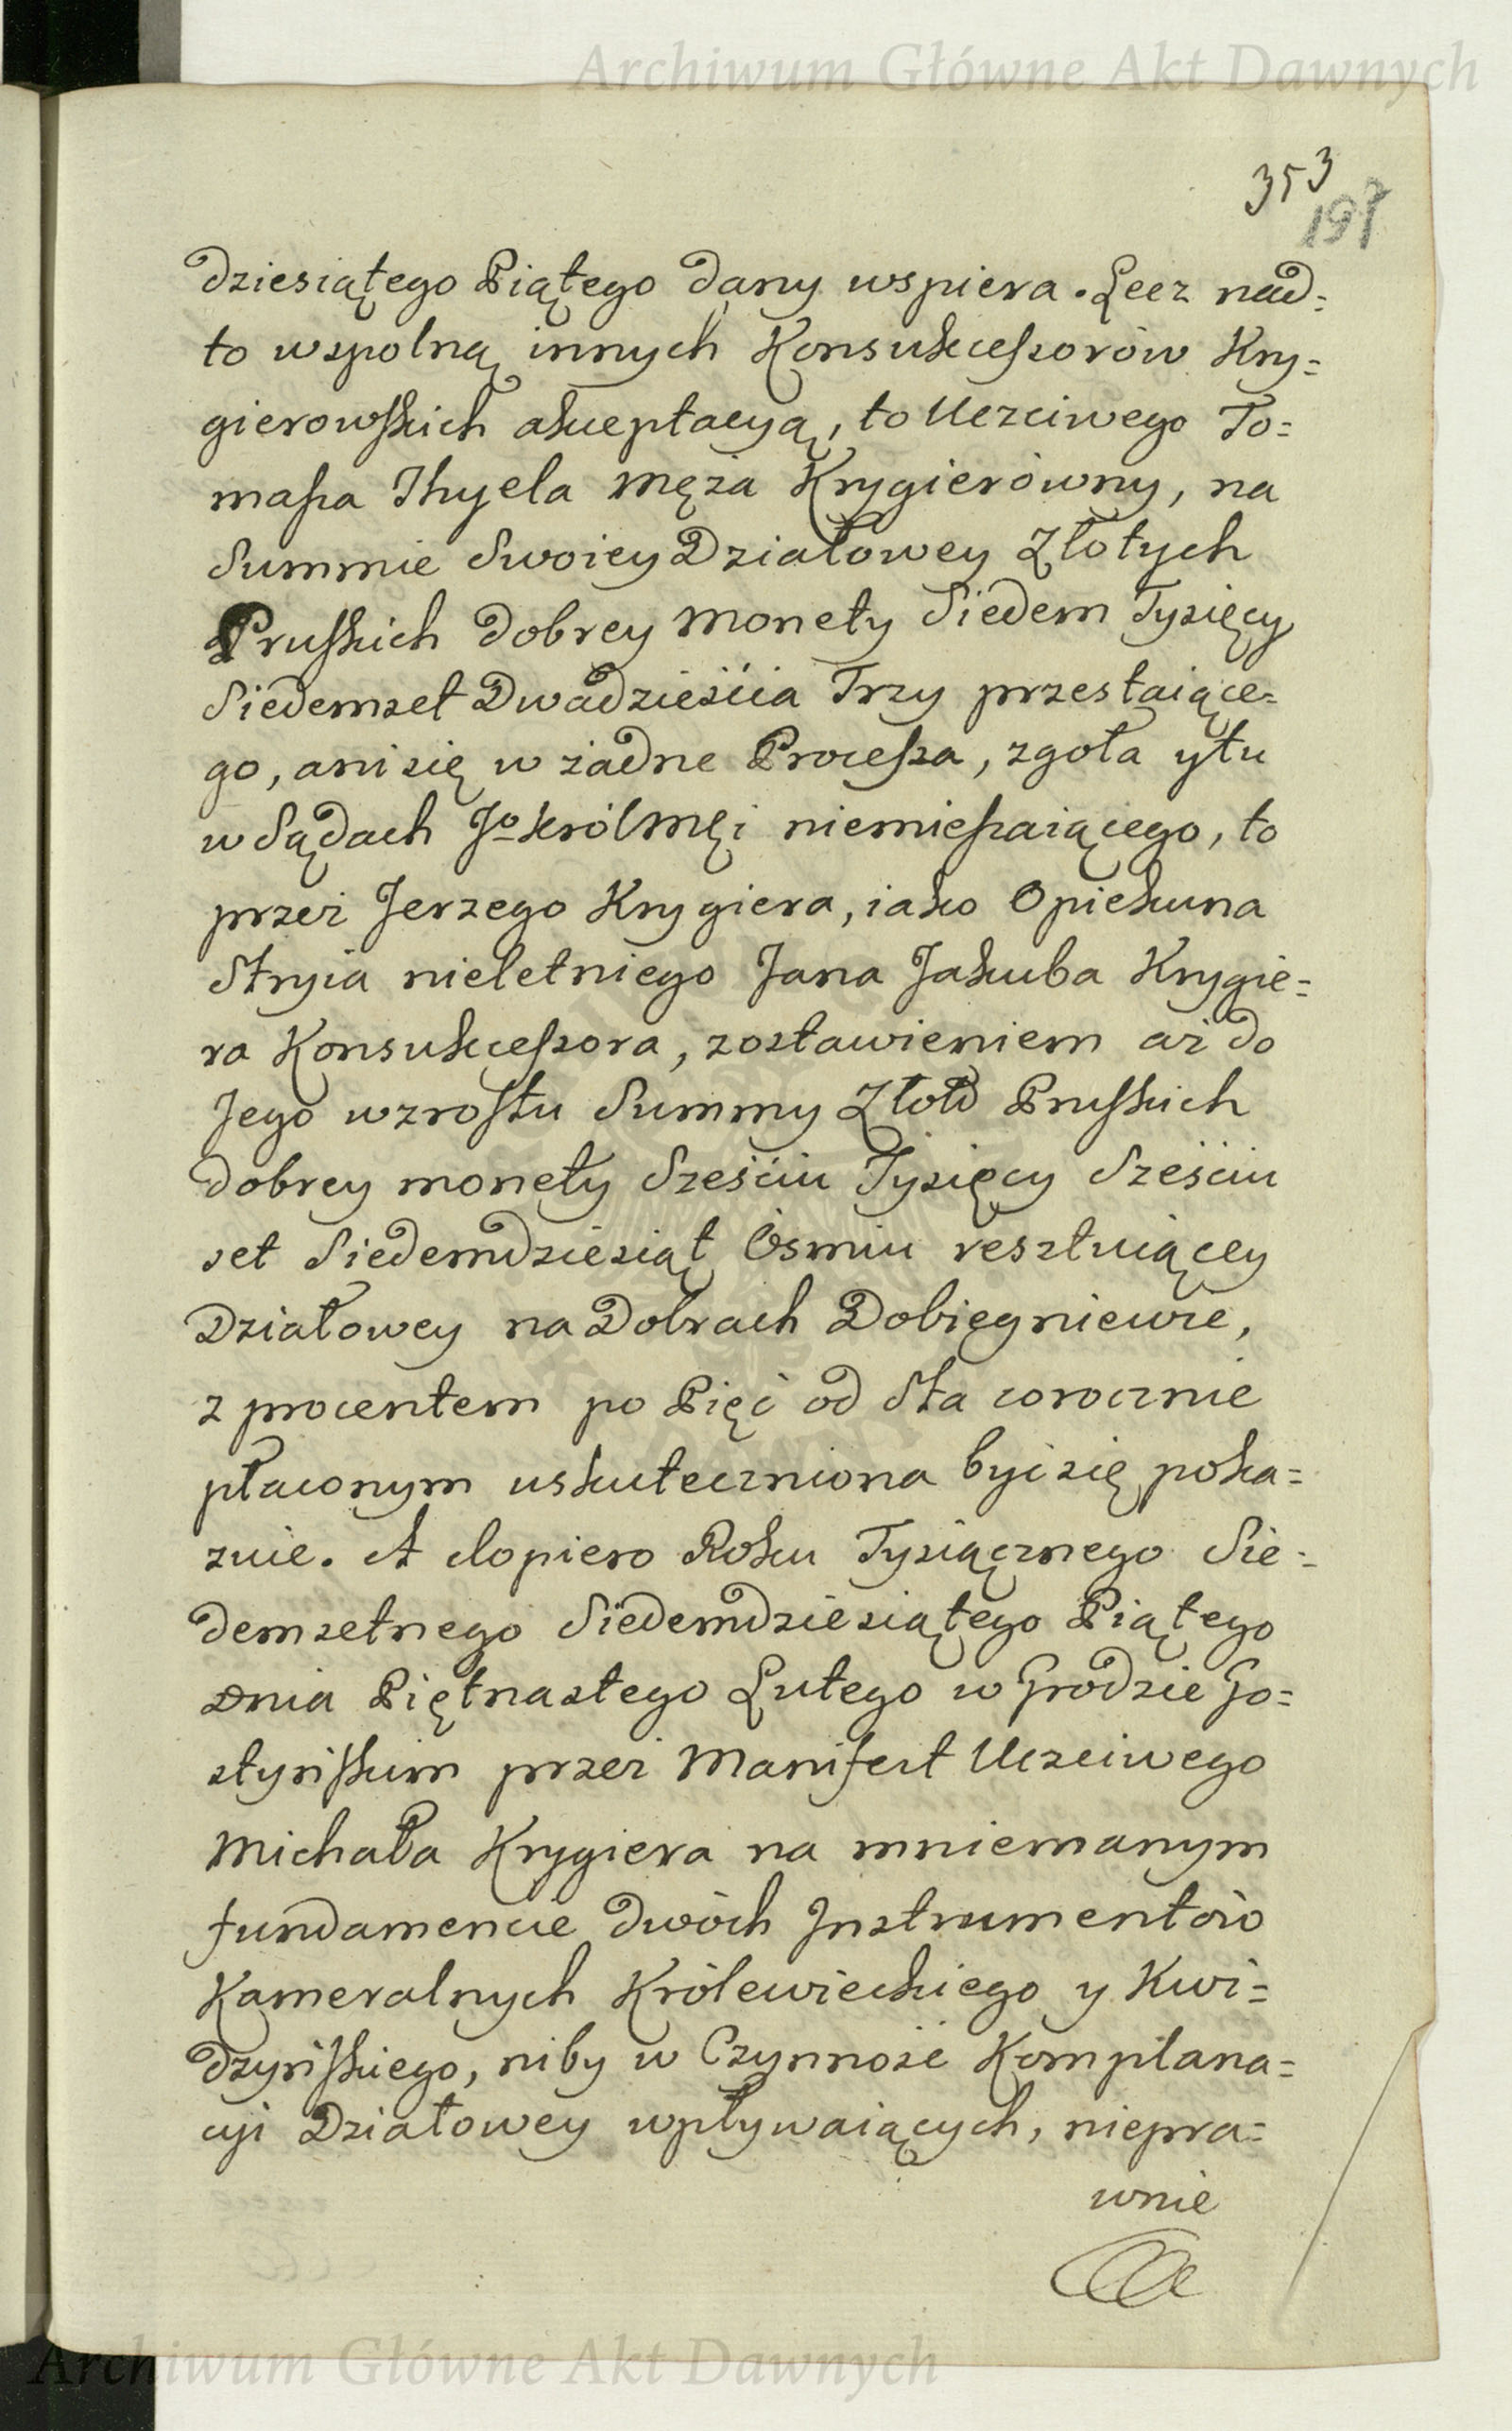 Archiwum Główne Akt Dawnych
353
197
dziesiątego Piątego dany wspiera. Lecz nad=
to wspolną innych Konsukceßorów Kry=
gierowskich akceptacyą, to Uczciwego To=
maßa Thyela Męża Krygierówny, na
Summie Swoiey Działowey Złotych
Pruskich dobrey Monety Siedem Tysięcy
Siedemset Dwadzieścia Trzy przestaiące=
go, ani się w żadne Proceßa, zgoła y tu
w Sądach Jo KrólMći niemießaiącego, to
przez Jerzego Krygiera, iako Opiekuna
Stryia nieletniego Jana Jakuba Krygie=
ra Konsukceßora, zostawieniem aż do
Jego wzrostu Summy Złotd Pruskich
dobrey monety Sześciu Tysięcy Sześciu
set Siedemdziesiąt Ośmiu resztuiącey
Działowey na Dobrach Dobiegniewie,
z procentem po Pięć od Sta corocznie
płaconym uskuteczniona być się poka=
zuie. A dopiero Roku Tysiącznego Sie=
demsetnego Siedemdziesiątego Piątego
Dnia Piętnastego Lutego w Grodzie Go=
styńskim przez Manifest Uczciwego
Michała Krygiera na mniemanym
fundamencie dwóch Instrumentów
Kameralnych Królewieckiego y Kwi=
dzyńskiego, niby w Czynność Komplana=
cyi Działowey wpływaiących, niepra=
wnie
Archiwum Główne Akt Dawnych